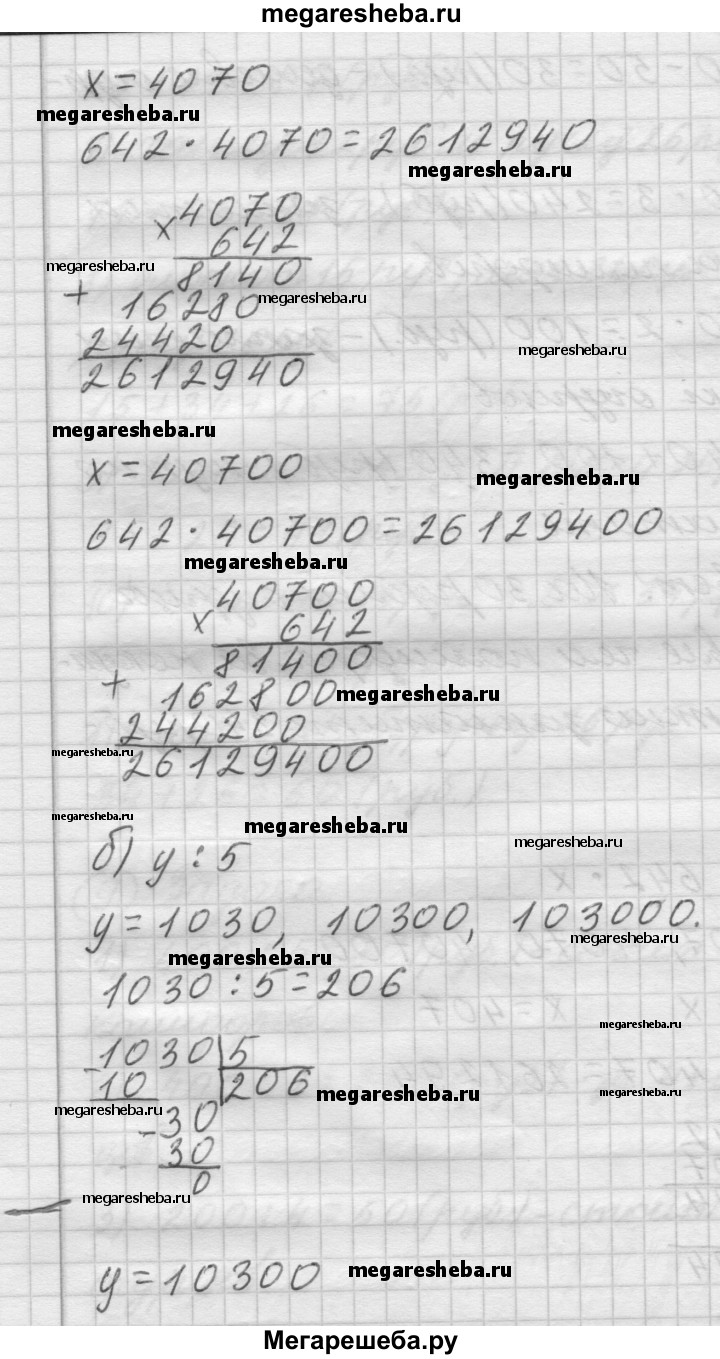 megaresheba.ru
x = 4070
megaresheba.ru
642 · 4070 = 2612940
megaresheba.ru
4070
× 642
8140
megaresheba.ru
+ 16280
megaresheba.ru
24420
megaresheba.ru
2612940
megaresheba.ru
x = 40700
megaresheba.ru
642 · 40700 = 26129400
megaresheba.ru
40700
× 642
81400
+ 162800
megaresheba.ru
244200
megaresheba.ru
26129400
megaresheba.ru
megaresheba.ru
megaresheba.ru
б) y : 5
y = 1030, 10300, 103000.
megaresheba.ru
megaresheba.ru
1030 : 5 = 206
megaresheba.ru
- 1030 | 5
10 | 206
megaresheba.ru
megaresheba.ru
- 30
30
0
megaresheba.ru
y = 10300
megaresheba.ru
Мегарешеба.ру